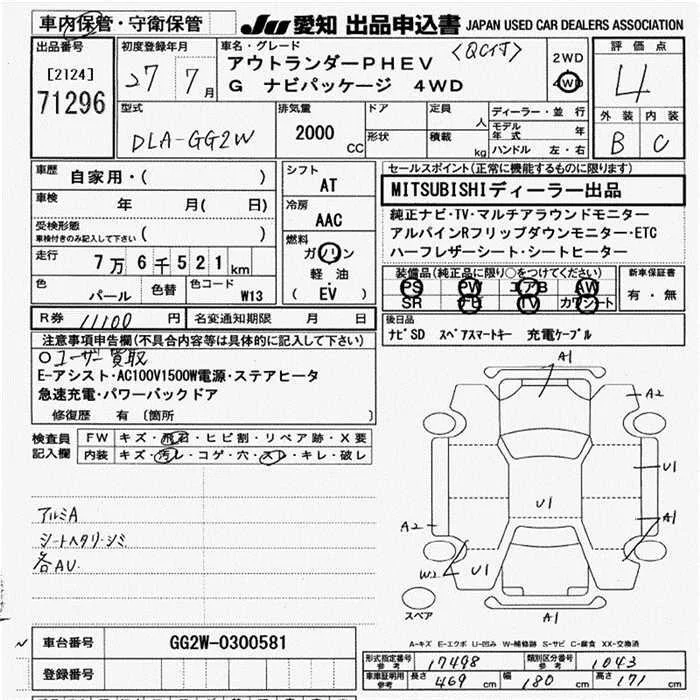 車内保管・守衛保管
JU 愛知 出品申込書 JAPAN USED CAR DEALERS ASSOCIATION
出品番号
[2124]
71296
初度登録年月
27 7月
車名・グレード
アウトランダーPHEV <QCイT>
G ナビパッケージ 4WD
2WD
4WD
評価点
4
外装 内装
B C
型式
DLA-GG2W
排気量
2000 CC
ドア
形状
定員 人
積載 kg
ディーラー・並行
モデル年式 年
ハンドル 左・右
車歴 自家用・( )
車検 年 月( 日)
受検形態
車検付きのみ記入して下さい ( )
走行 7万6千521km
色 パール 色替 色コード W13
シフト
AT
冷房
AAC
燃料
ガソリン
軽油
( EV )
セールスポイント(正常に機能するものに限ります)
MITSUBISHIディーラー出品
純正ナビ・TV・マルチアラウンドモニター
アルパインRフリップダウンモニター・ETC
ハーフレザーシート・シートヒーター
装備品(純正品に限り○をつけてください)
PS PW エアB AW
SR ナビ TV カワシート
新車保証書
有・無
R券 11100 円 名変通知期限 月 日
後日品
ナビSD スペアスマートキー 充電ケーブル
注意事項申告欄(不具合内容等は具体的に記入して下さい)
○ユーザー買取
E-アシスト・AC100V1500W電源・ステアヒータ
急速充電・パワーバックドア
修復歴 有 [箇所 ]
検査員記入欄
FW キズ・飛石・ヒビ割・リペア跡・X要
内装 キズ・汚レ・コゲ・穴・スレ・キレ・破レ
アルミA
シートヘタリ・シミ
各AU
A1
A2
U1
U1
A1
A2
W2
U1
A1
スペア
A-キズ E-エクボ U-凹み W-補修跡 S-サビ C-腐食 XX-交換済
車台番号 GG2W-0300581
登録番号
形式指定番号 参考 17498 類別区分番号 参考 1043
車庫証明用 参考 長さ 469 cm 幅 180 cm 高さ 171 cm